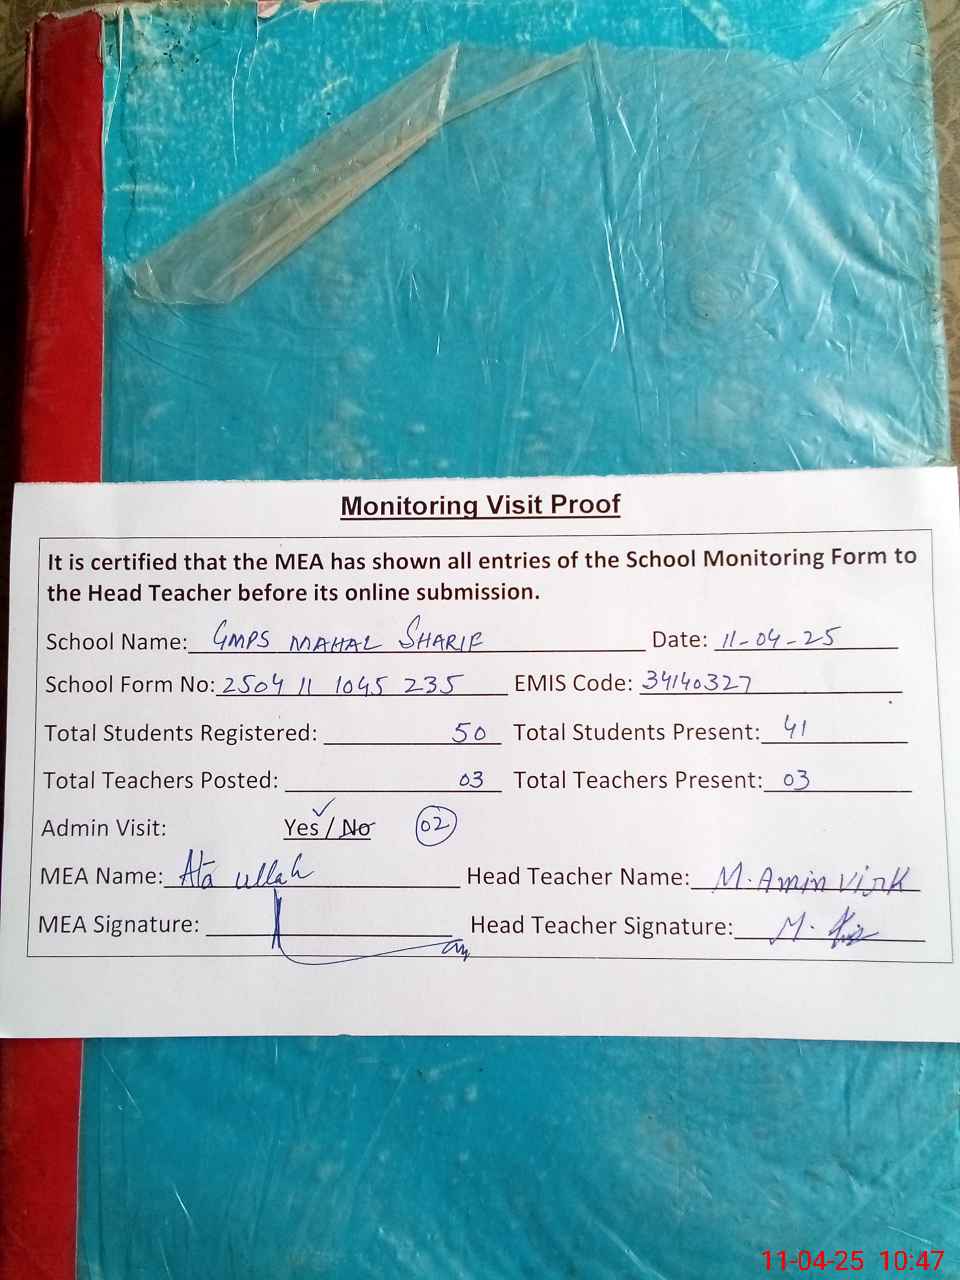 Monitoring Visit Proof
It is certified that the MEA has shown all entries of the School Monitoring Form to
the Head Teacher before its online submission.
School Name: GMPS MAHAL SHARIF Date: 11-04-25
School Form No: 2504 11 1045 235 EMIS Code: 34140327
Total Students Registered: 50 Total Students Present: 41
Total Teachers Posted: 03 Total Teachers Present: 03
Admin Visit: Yes / No 02
MEA Name: Ata ullah Head Teacher Name: M. Amin Virk
MEA Signature: Head Teacher Signature: M.
11-04-25 10:47